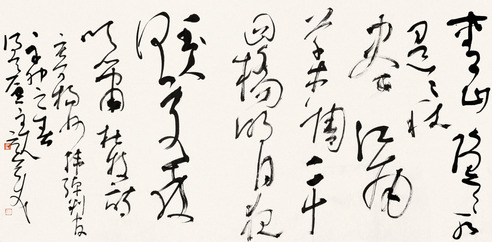 青山隐々水
迢々秋
尽江南
草木凋二十
四桥明月夜
玉人何处教
吹箫 杜牧诗
寄扬州韩绰判官
之春